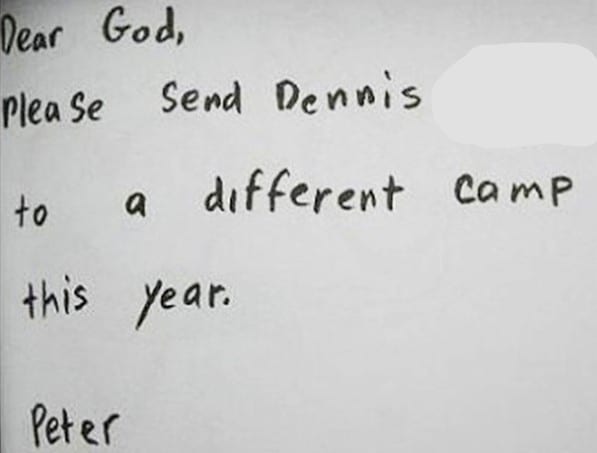 Dear God,
Please Send Dennis
to a different camp
this year.
Peter